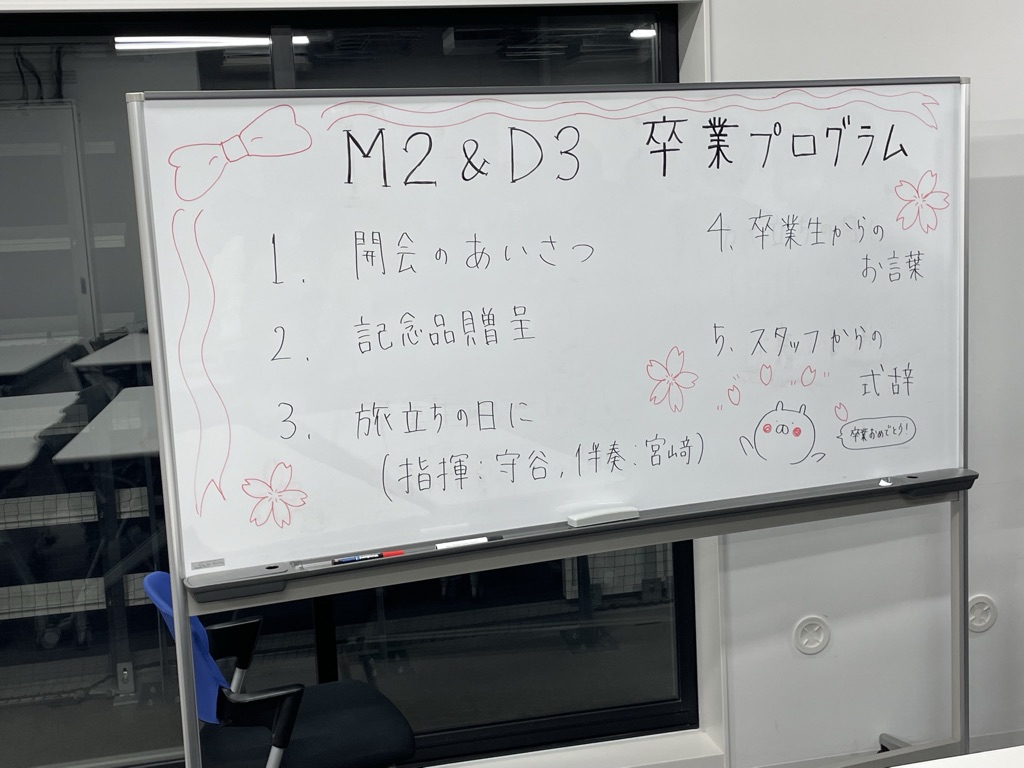 M2&D3 卒業プログラム
1. 開会のあいさつ
2. 記念品贈呈
3. 旅立ちの日に
(指揮:守谷, 伴奏:宮崎)
4、卒業生からの
お言葉
5、スタッフからの
式辞
卒業おめでとう!